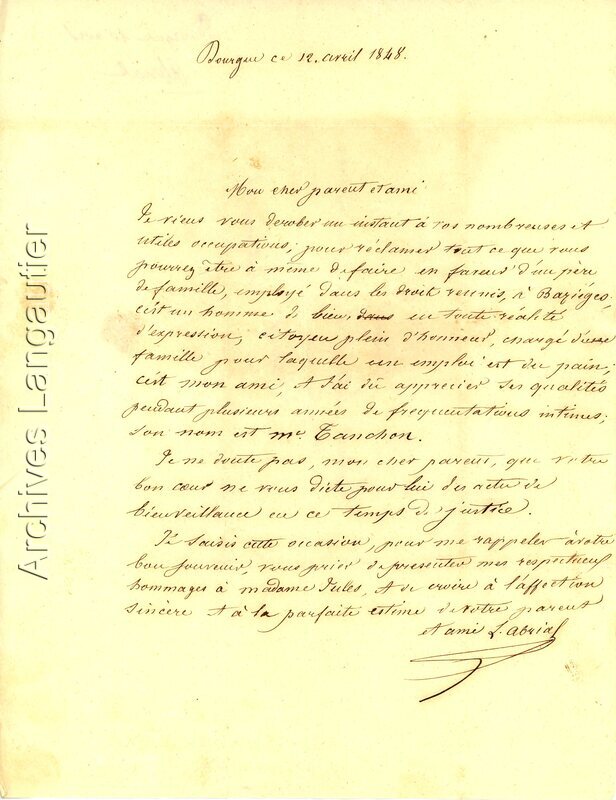 Bourgue ce 12. avril 1848.
Mon cher parent et ami
Je viens vous derober un instant à vos nombreuses et
utiles occupations; pour réclamer tout ce que vous
pourrez être à même de faire en faveur d'un père
de famille, employé dans les droit reunis, à Bazièges,
c'est un homme de bien, dans en toute réalité
d'expression, citoyen plein d'honneur, chargé d'une
famille pour laquelle un emploi est du pain;
c'est mon ami, et j'ai dû apprecier ses qualités
pendant plusieurs années de frequentations intimes;
son nom est mr. Tanchon.
Je ne doute pas, mon cher parent, que votre
bon cœur ne vous dicte pour lui des actes de
bienveillance en ce temps de justice.
Je saisis cette occasion, pour me rappeler à votre
bon souvenir, vous prier de presenter mes respectueux
hommages à madame Jules, et de croire à l'affection
sincère et à la parfaite estime de votre parent
et ami L. Abrial
Archives Langautier